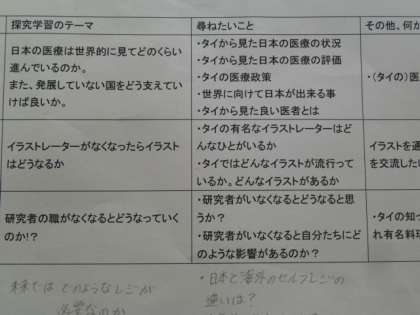 探究学習のテーマ
尋ねたいこと
その他、何か
日本の医療は世界的に見てどのくらい
進んでいるのか。
また、発展していない国をどう支えてい
けば良いか。
・タイから見た日本の医療の状況
・タイから見た日本の医療の評価
・タイの医療政策
・世界に向けて日本が出来る事
・タイから見た良い医者とは
・（タイの）医
イラストレーターがなくなったらイラスト
はどうなるか
・タイの有名なイラストレーターはど
んなひとがいるか
・タイではどんなイラストが流行って
いるか。どんなイラストがあるか
イラストを通
を交流したい
研究者の職がなくなるとどうなっていく
のか!？
・研究者がいなくなるとどうなると思
うか？
・研究者がいなくなると自分たちにど
のような影響があるのか？
・タイの知っ
れ有名料理
未来では どのようなレジが
必要なのか
・日本と海外のセルフレジの
違いは？